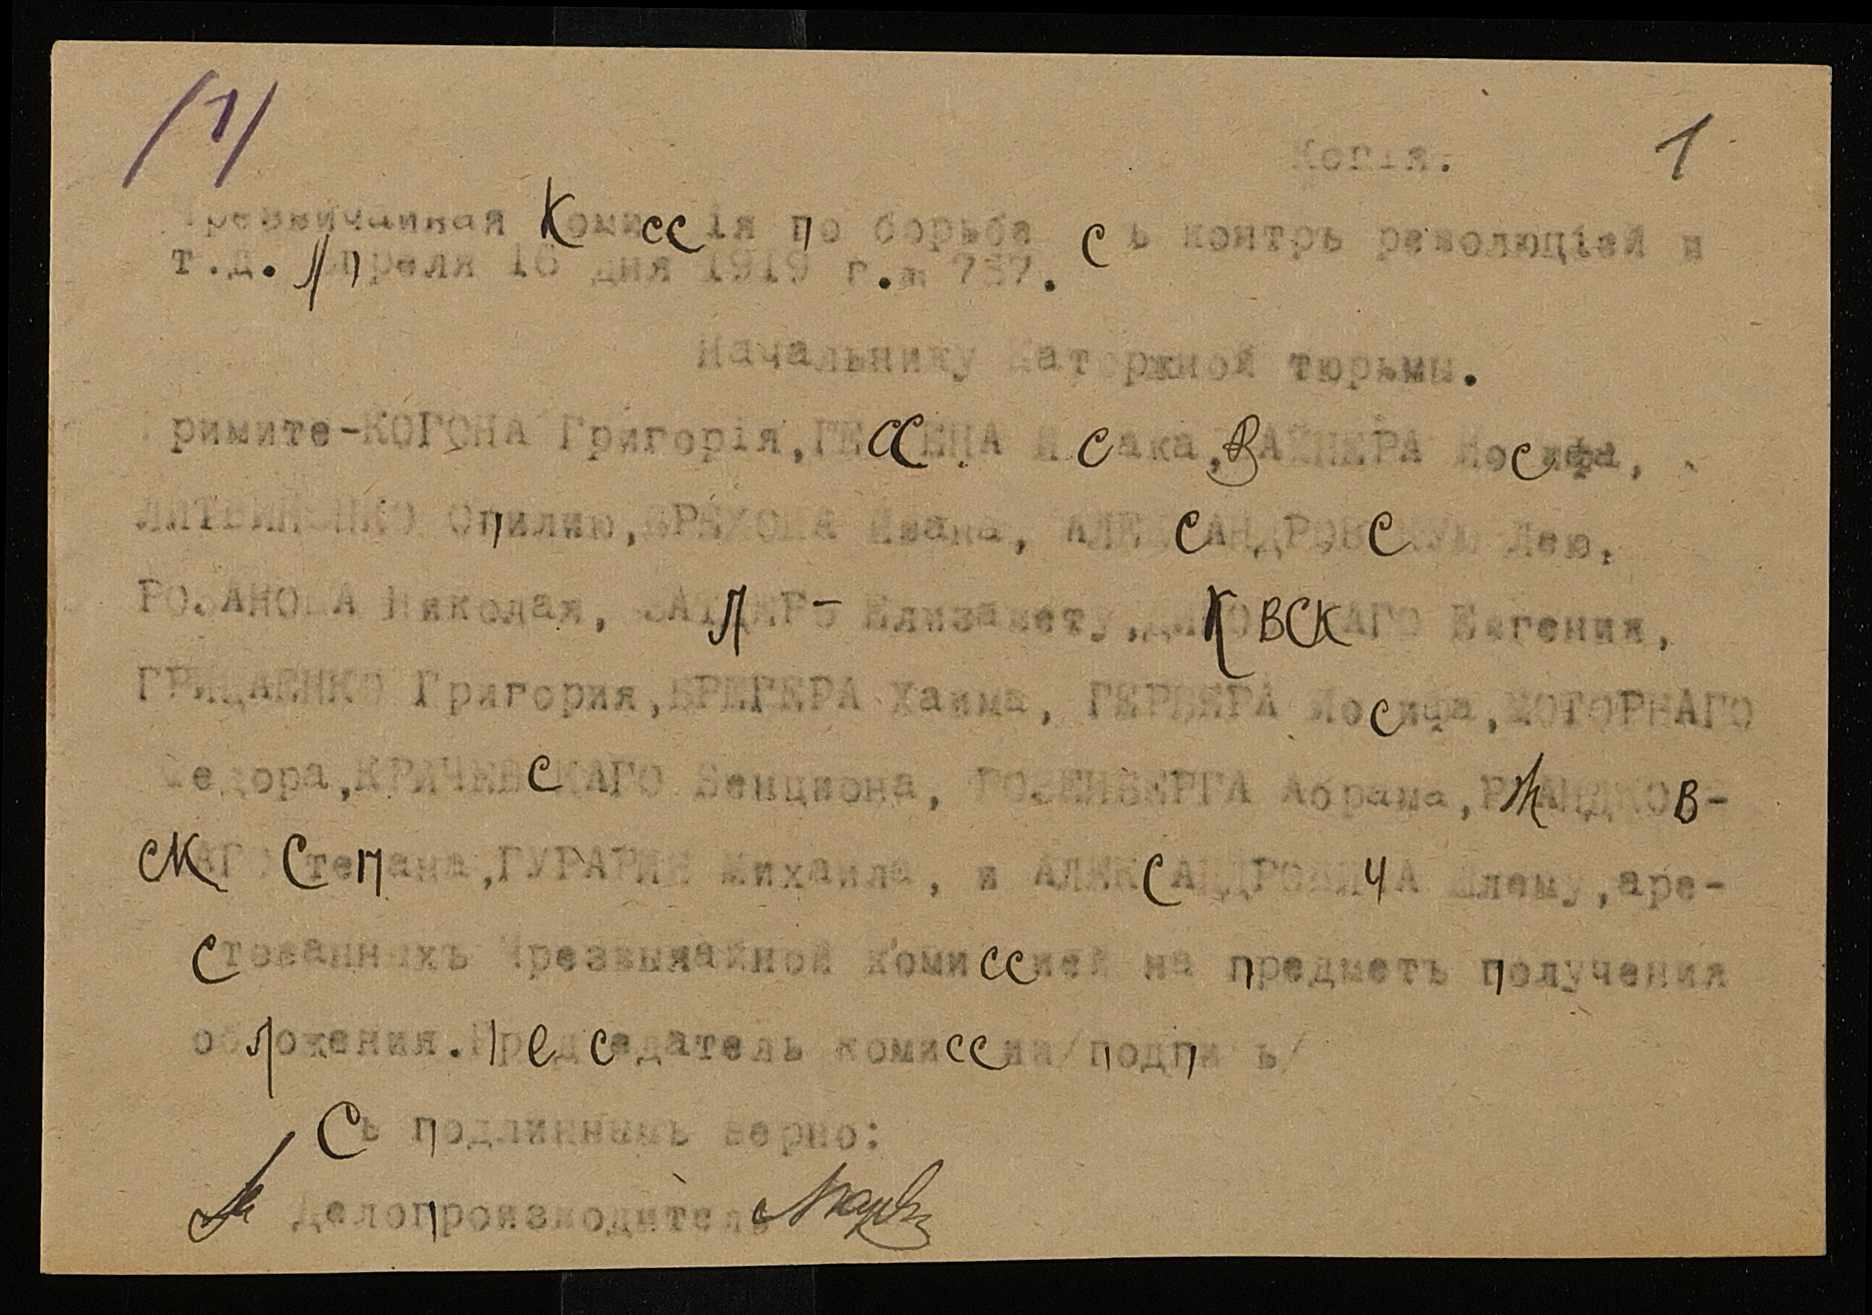 /1/
Копія. 1
Чрезвичайная Комиссія по борьбе съ контръ революціей и
т.д. Апреля 16 дня 1919 г. № 737.
Начальнику Каторжной тюрьмы.
Примите-КОГОНА Григорія, ГЕССЕНА Исака, ВАЙНЕРА Иосифа,
ЛИТВИНЕНКО Опилию, Ивана, АЛЕКСАНДРОВСКУЮ Лею,
РОЗАНОВА Николая, Елизавету, Евгения,
ГРИЦАЕНКО Григория, КРЕГЕРА Хаима, Иосифа, МОТОРНАГО
Федора, КРИЧЕВСКАГО Бенциона, РОЗЕНБЕРГА Абрама, РЖАНДКОВ-
СКАГО Степана, ГУРАРИЯ Михаила, и АЛЕКСАНДРОВИЧА Шлему, аре-
стованныхъ Чрезвычайной Комиссией на предметъ получения
обложения. Председатель комиссии/подпиь/
Съ подлиннымъ верно:
Делопроизводитель